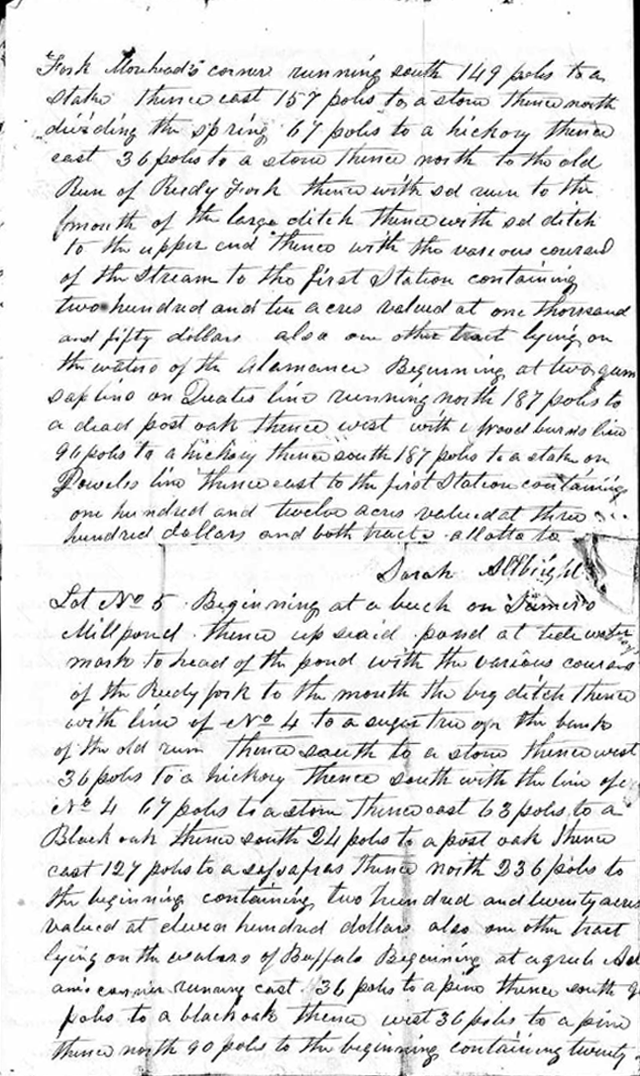 Fork Morehead's corner running south 149 poles to a
Stake thence east 157 poles to a stone thence north
dividing the spring 67 poles to a hickory thence
east 36 poles to a stone thence north to the old
Run of Reedy Fork thence with sd run to the
mouth of the large ditch thence with sd ditch
to the upper end thence with the various courses
of the Stream to the first Station containing
two hundred and ten acres valued at one thousand
and fifty dollars also one other tract lying on
the waters of the Alamance Beginning at two gum
saplins on line running north 187 poles to
a dead post oak thence west with line
96 poles to a hickory thence south 187 poles to a stake on
Powels line thence east to the first Station containing
one hundred and twelve acres valued at three
hundred dollars and both tracts allotto to
Sarah Albright
Lot No 5 Beginning at a buck on
Millpond thence up said pond at tide water
mark to head of the pond with the various courses
of the Reedy fork to the mouth the big ditch thence
with line of No 4 to a sugar tree on the bank
of the old run thence south to a stone thence west
36 poles to a hickory thence south with the line of
No 4 67 poles to a stone thence east 63 poles to a
Black oak thence south 24 poles to a post oak thence
east 127 poles to a sasafras thence north 236 poles to
the beginning containing two hundred and twenty acres
valued at eleven hundred dollars also one other tract
lying on the waters of Buffalo Beginning at a grub
corner running east 36 poles to a pine thence south
poles to a black oak thence west 36 poles to a pine
thence north 90 poles to the beginning containing twenty